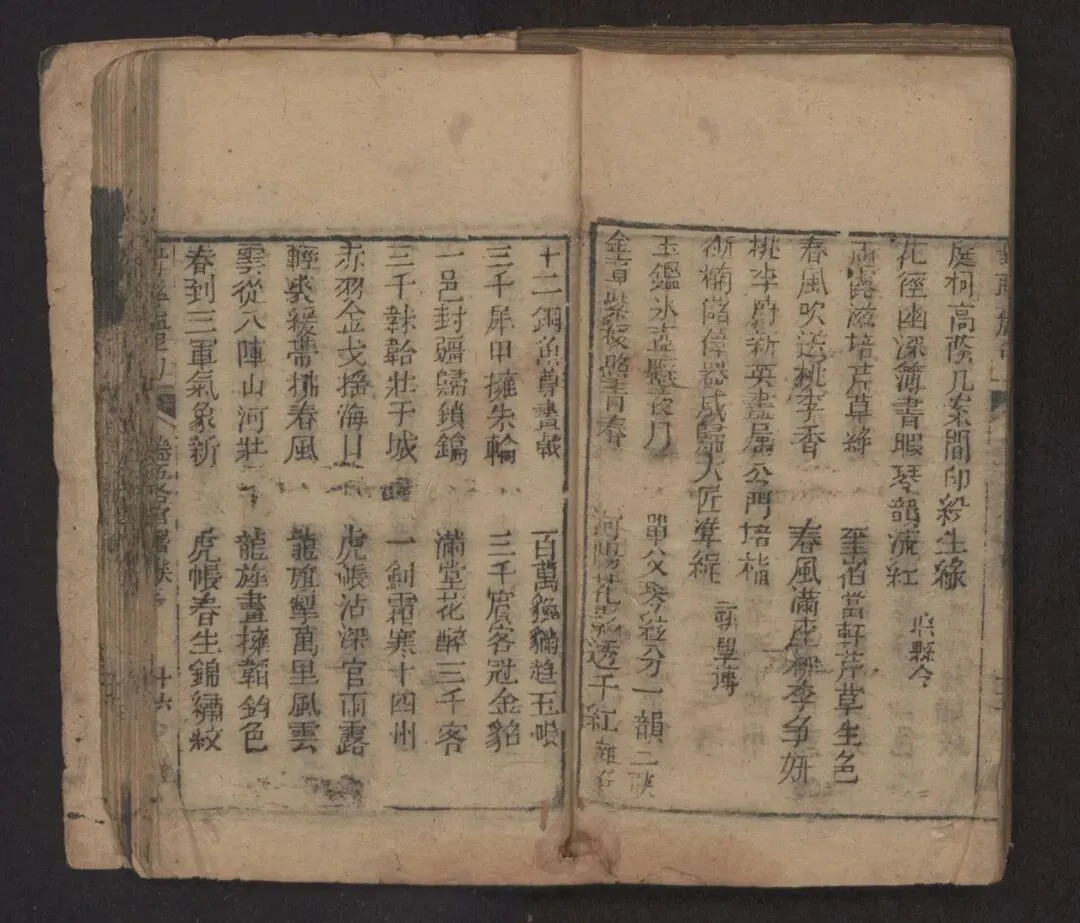 庭柯高蔭几案間印綬生綠
花徑幽深簿書暇琴韻流紅 縣令
露滋培芹草綠 至省當軒芹草生色
春風吹送桃李香 春風滿座桃李争妍
桃李新英盡属公門培植
儲偉器咸歸大匠凖繩 學博
玉鑑氷壺懸夜月 單父琴絃分一韻 二
金章紫綬照青春 河陽花影透千紅 雜
十二銅魚尊畫戟 百萬貔貅趋玉帳
三千犀甲擁朱輪 三千賓客冠金貂
一邑封疆歸鎖鑰 滿堂花醉三千客
三千韎韐壮于城 一劍霜寒十四州
赤羽金戈摇海日 虎帳沾深官雨露
輕裘緩帶拂春風 龍旗掣萬里風雲
雲從八陣山河壯 龍旌畫擁韜鈐色
春到三軍氣象新 虎帳春生錦繡紋
卷五 官署 十六